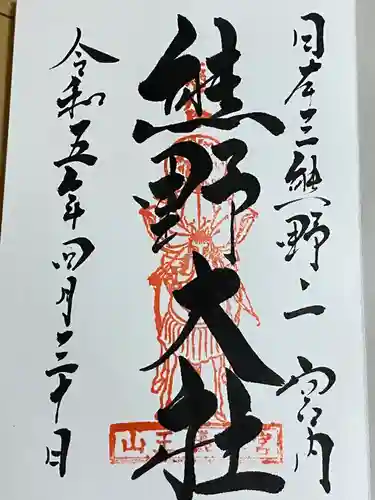 日本三熊野之一 宮内
熊野大社
令和五年四月二十日